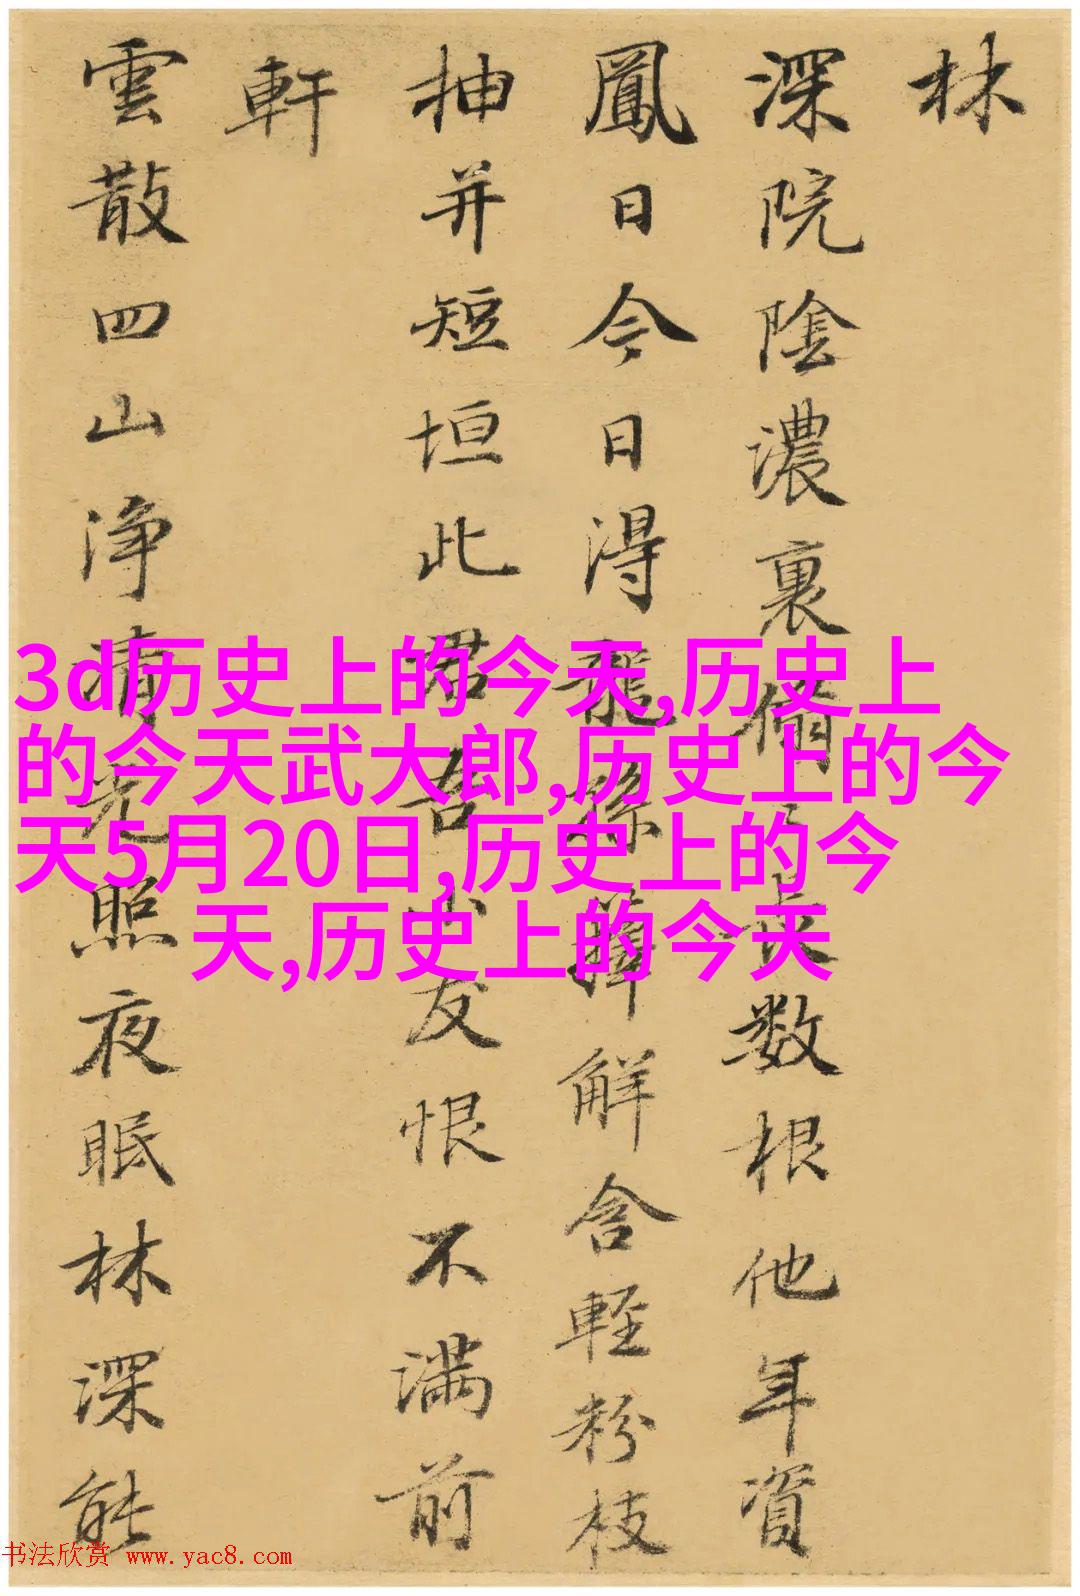 林
深院陰濃裏脩々長数根他年資
鳳日今日得龍孫籜解含輕粉枝
抽并短垣此君吾小友恨不満前
軒
雲散四山浄清光照夜眠林深能
3d历史上的今天,历史上
的今天武大郎,历史上的今
天5月20日,历史上的今
天,历史上的今天
书法欣赏 www.yac8.com